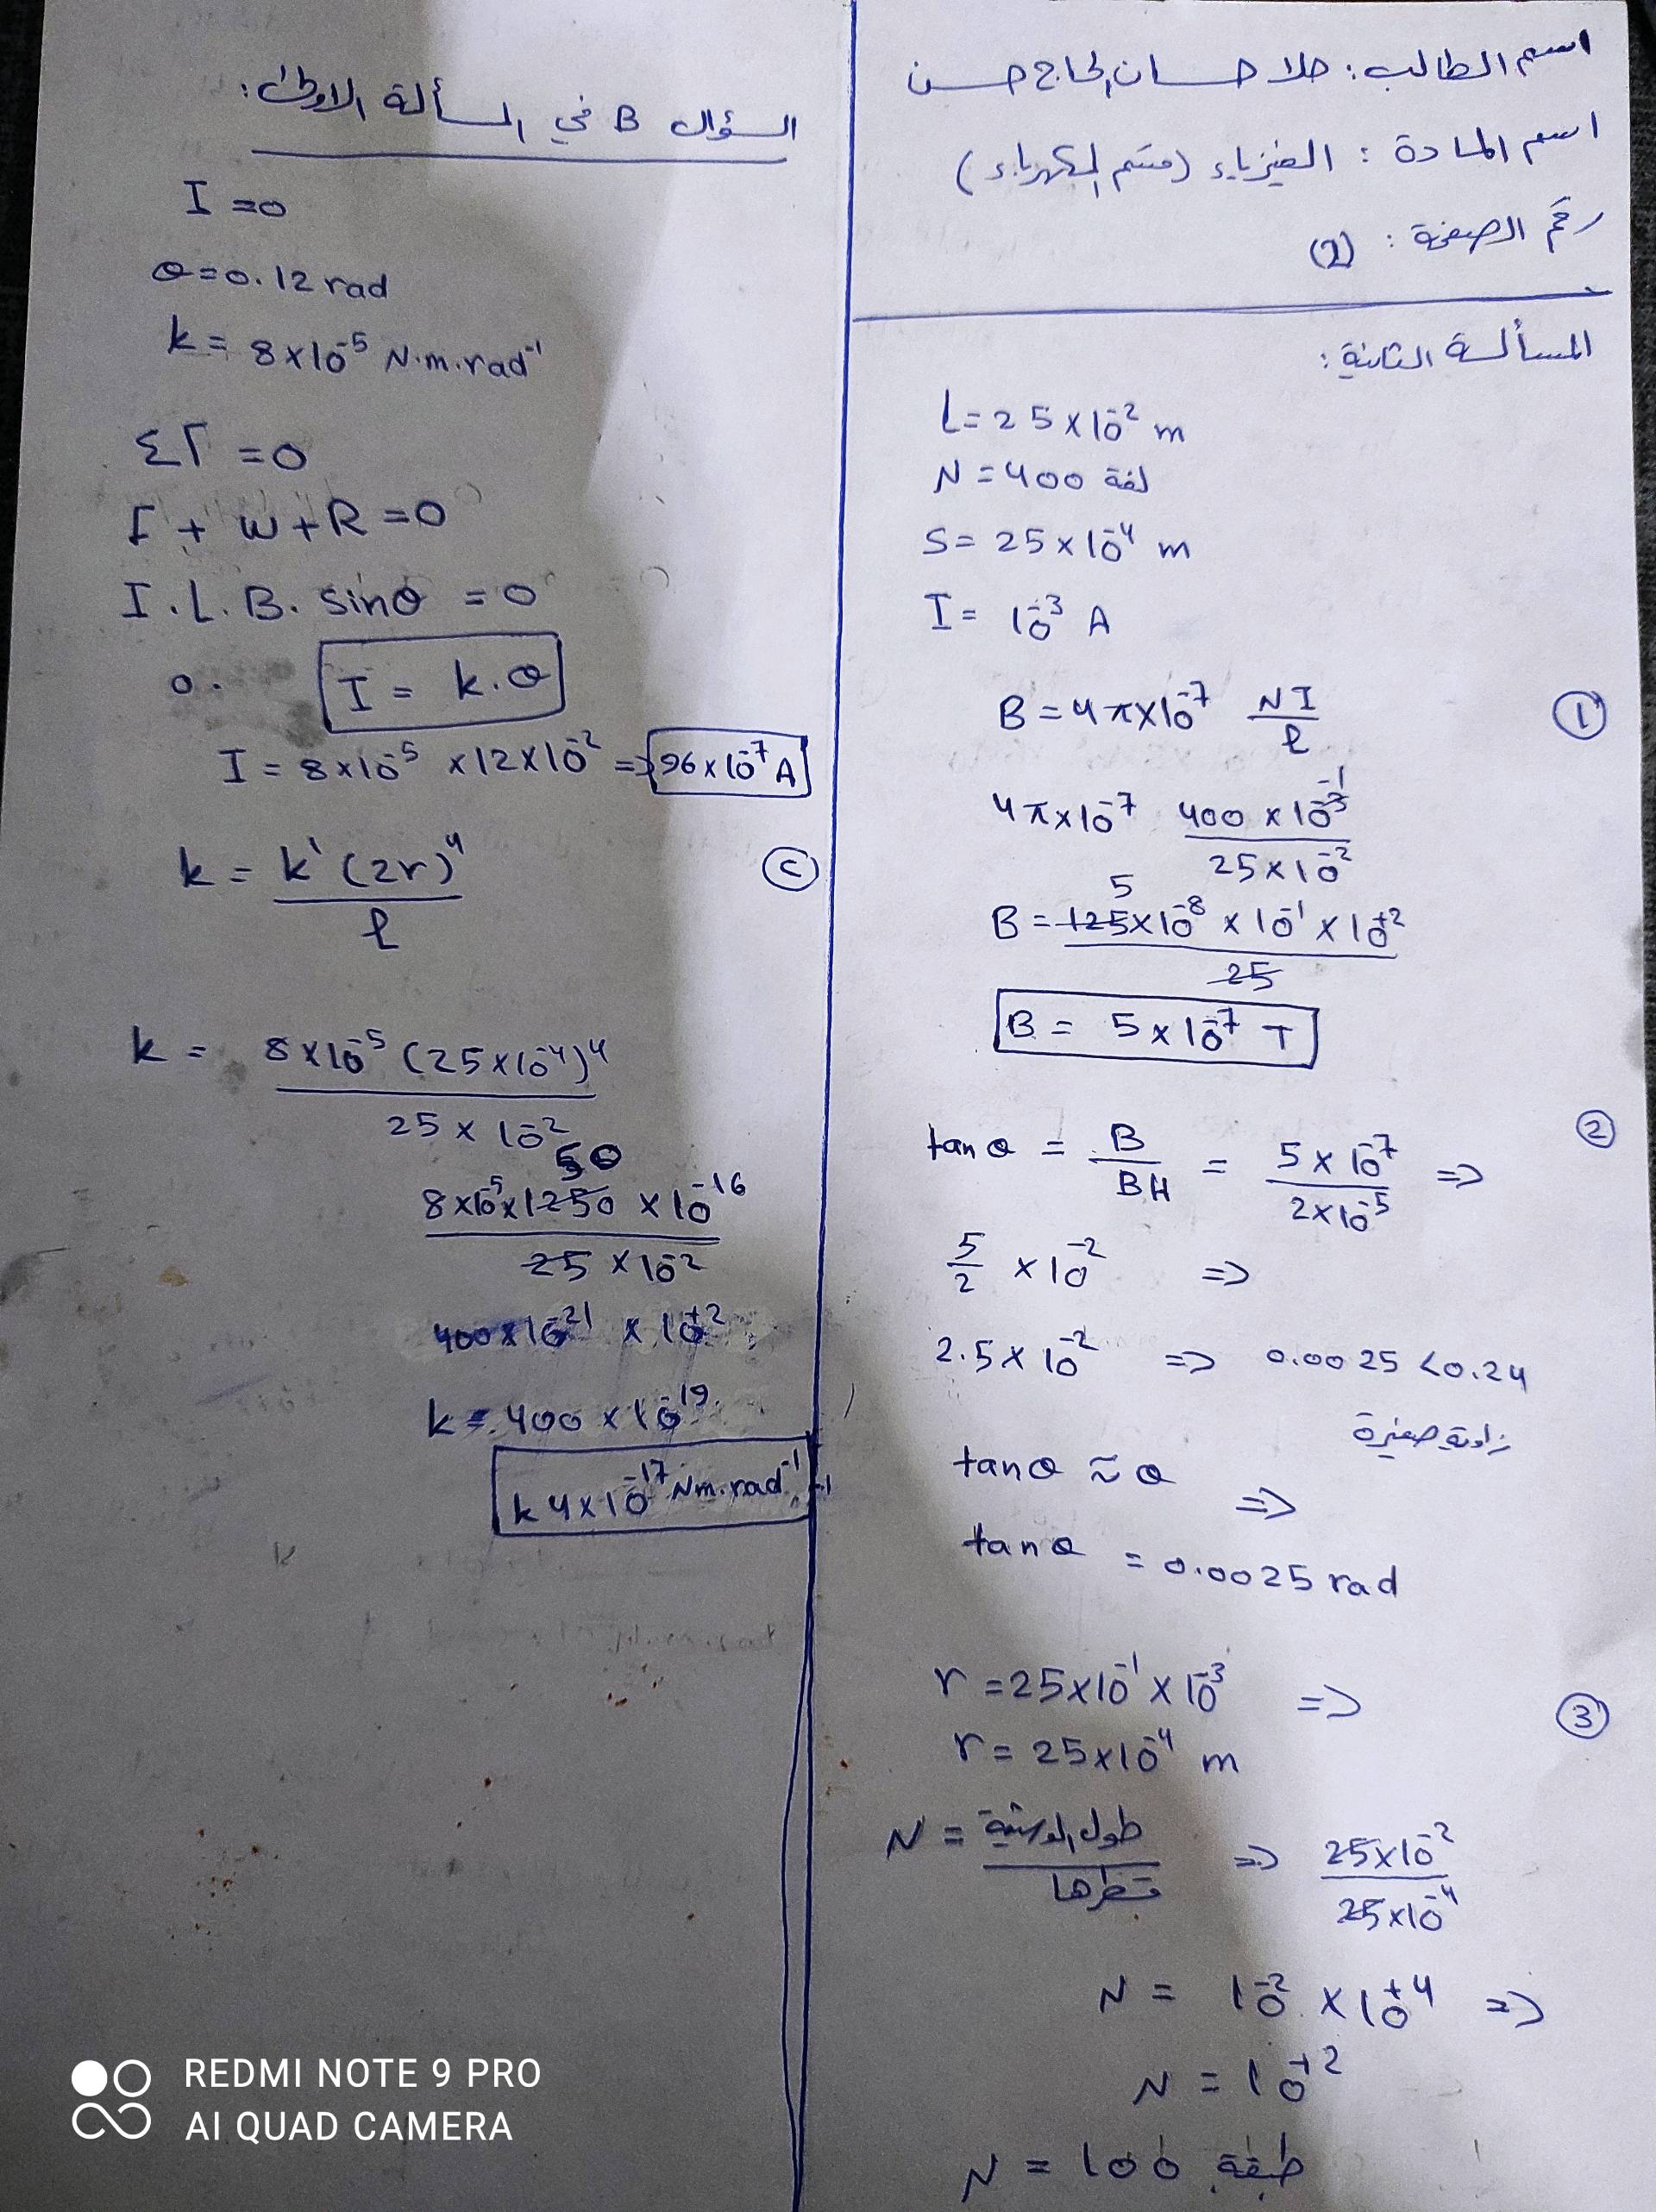 اسم الطالب: حلا حسان الحاج حسن
اسم المادة: الفيزياء (قسم الكهرباء)
رقم الصفحة: (2)
المسألة الثانية:
L = 25 × 10⁻² m
N = 400 لفة
S = 25 × 10⁻⁴ m
I = 10⁻³ A
① B = 4π×10⁻⁷ NI/l
4π×10⁻⁷ 400 × 10⁻¹/25×10⁻²
B = 125×10⁻⁸ × 10⁻¹ × 10⁺²/25
5
B = 5 × 10⁻⁷ T
② tan θ = B/BH = 5 × 10⁻⁷/2×10⁻⁵ ⇒
5/2 × 10⁻² ⇒
2.5 × 10⁻² ⇒ 0.0025 < 0.24
زاوية صغيرة
tan θ ≈ θ ⇒
tan θ = 0.0025 rad
③ r = 25×10⁻¹ × 10⁻³ ⇒
r = 25×10⁻⁴ m
N = طول الوشيعة/قطرها ⇒ 25×10⁻²/25×10⁻⁴
N = 10⁻² × 10⁺⁴ ⇒
N = 10⁺²
N = 100 طبقة
السؤال B في المسألة الاولى:
I = 0
θ = 0.12 rad
k = 8×10⁻⁵ N.m.rad⁻¹
ΣΓ = 0
Γ + W + R = 0
I.L.B. sinθ = 0
0. I = k.θ
I = 8×10⁻⁵ × 12×10⁻² ⇒ 96×10⁻⁷ A
Ⓒ k = k' (2r)⁴/l
k = 8×10⁻⁵ (25×10⁻⁴)⁴/25 × 10⁻²
50
8×10⁻⁵×1250 × 10⁻¹⁶/25 × 10⁻²
400×10⁻²¹ × 10⁺²
k = 400 × 10⁻¹⁹
k 4×10⁻¹⁷ Nm.rad⁻¹
REDMI NOTE 9 PRO
AI QUAD CAMERA